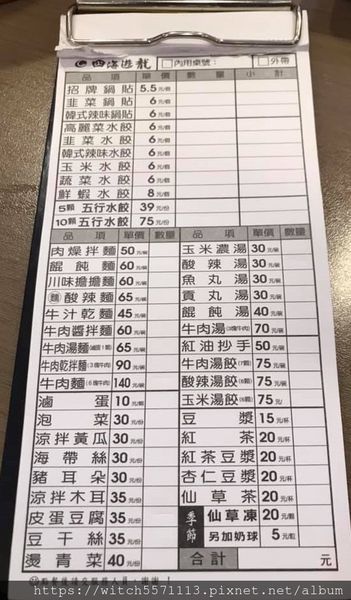 四海遊龍 □內用桌號: □外帶
品項 單價 數量 小計
招牌鍋貼 5.5元/個
韭菜鍋貼 6元/個
韓式辣味鍋貼 6元/個
高麗菜水餃 6元/個
韭菜水餃 6元/個
韓式辣味水餃 6元/個
玉米水餃 6元/個
蔬菜水餃 6元/個
鮮蝦水餃 8元/個
5顆 五行水餃 39元/份
10顆 五行水餃 75元/份
品項 單價 數量 品項 單價 數量
肉燥拌麵 50元/碗 玉米濃湯 30元/碗
餛飩麵 60元/碗 酸辣湯 30元/碗
川味擔擔麵 60元/碗 魚丸湯 30元/碗
(麵)酸辣麵 65元/碗 貢丸湯 30元/碗
牛汁乾麵 45元/碗 餛飩湯 40元/碗
牛肉醬拌麵 60元/碗 牛肉湯(3塊牛肉) 70元/碗
牛肉湯麵(滷蛋1顆) 65元/碗 紅油抄手 50元/碗
牛肉乾拌麵(3塊牛肉) 90元/碗 牛肉湯餃(7顆) 75元/碗
牛肉麵(6塊牛肉) 140元/碗 酸辣湯餃(8顆) 75元/
滷蛋 10元/個 玉米湯餃(8顆) 75元/
泡菜 30元/份 豆漿 15元/杯
涼拌黃瓜 30元/份 紅茶 20元/杯
海帶絲 30元/份 紅茶豆漿 20元/杯
豬耳朵 30元/份 杏仁豆漿 20元/杯
涼拌木耳 35元/份 仙草茶 20元/杯
皮蛋豆腐 35元/份 季節 仙草凍 20元/
豆干絲 35元/份 另加奶球 5元/
燙青菜 40元/份 合計 元
點餐後請交服務人員，謝謝！
https://witch5571113.pixnet.net/album